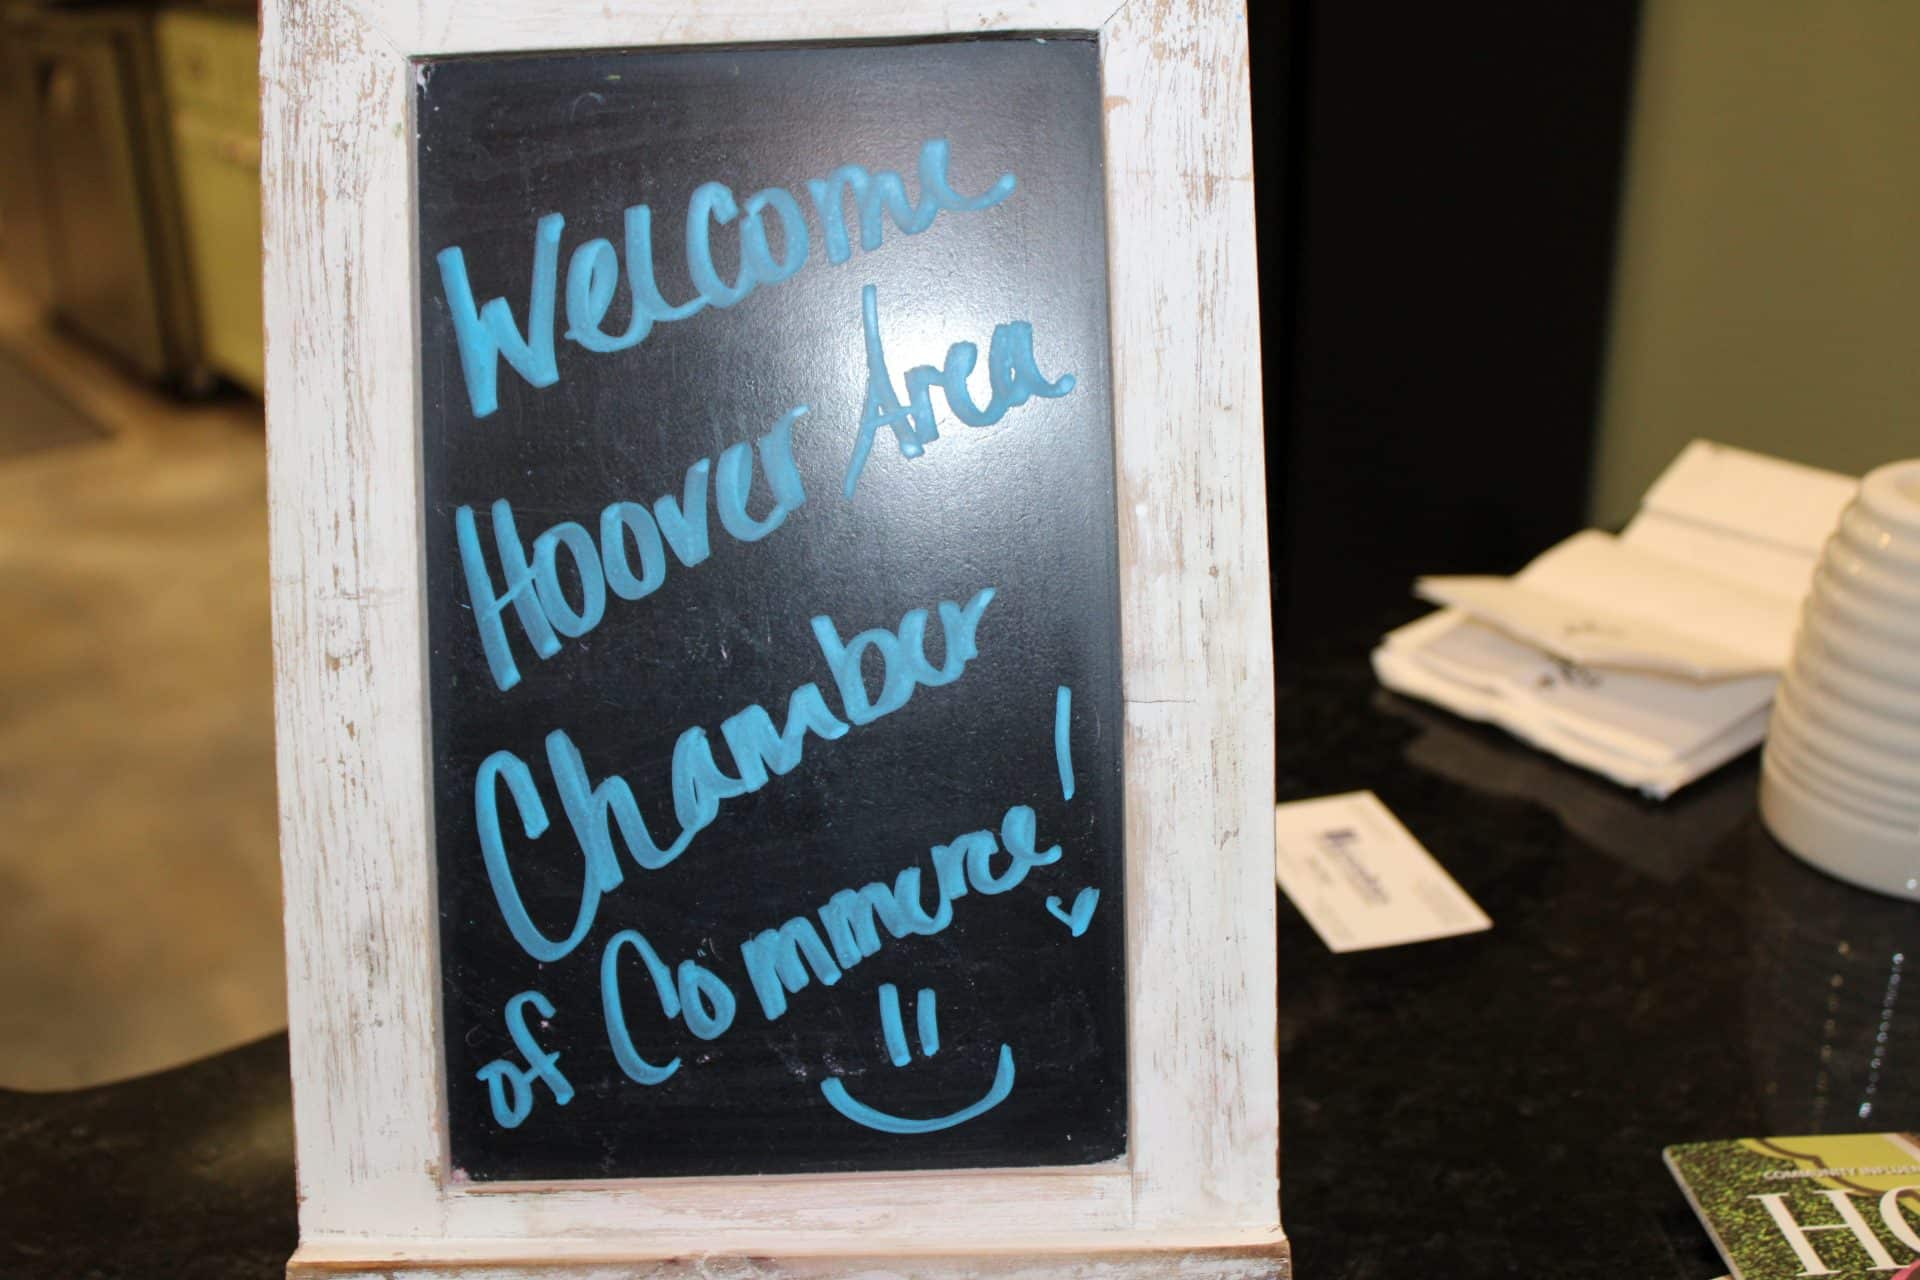 Welcome
Hoover Area
Chamber
of Commerce!
COMMUNITY
HO